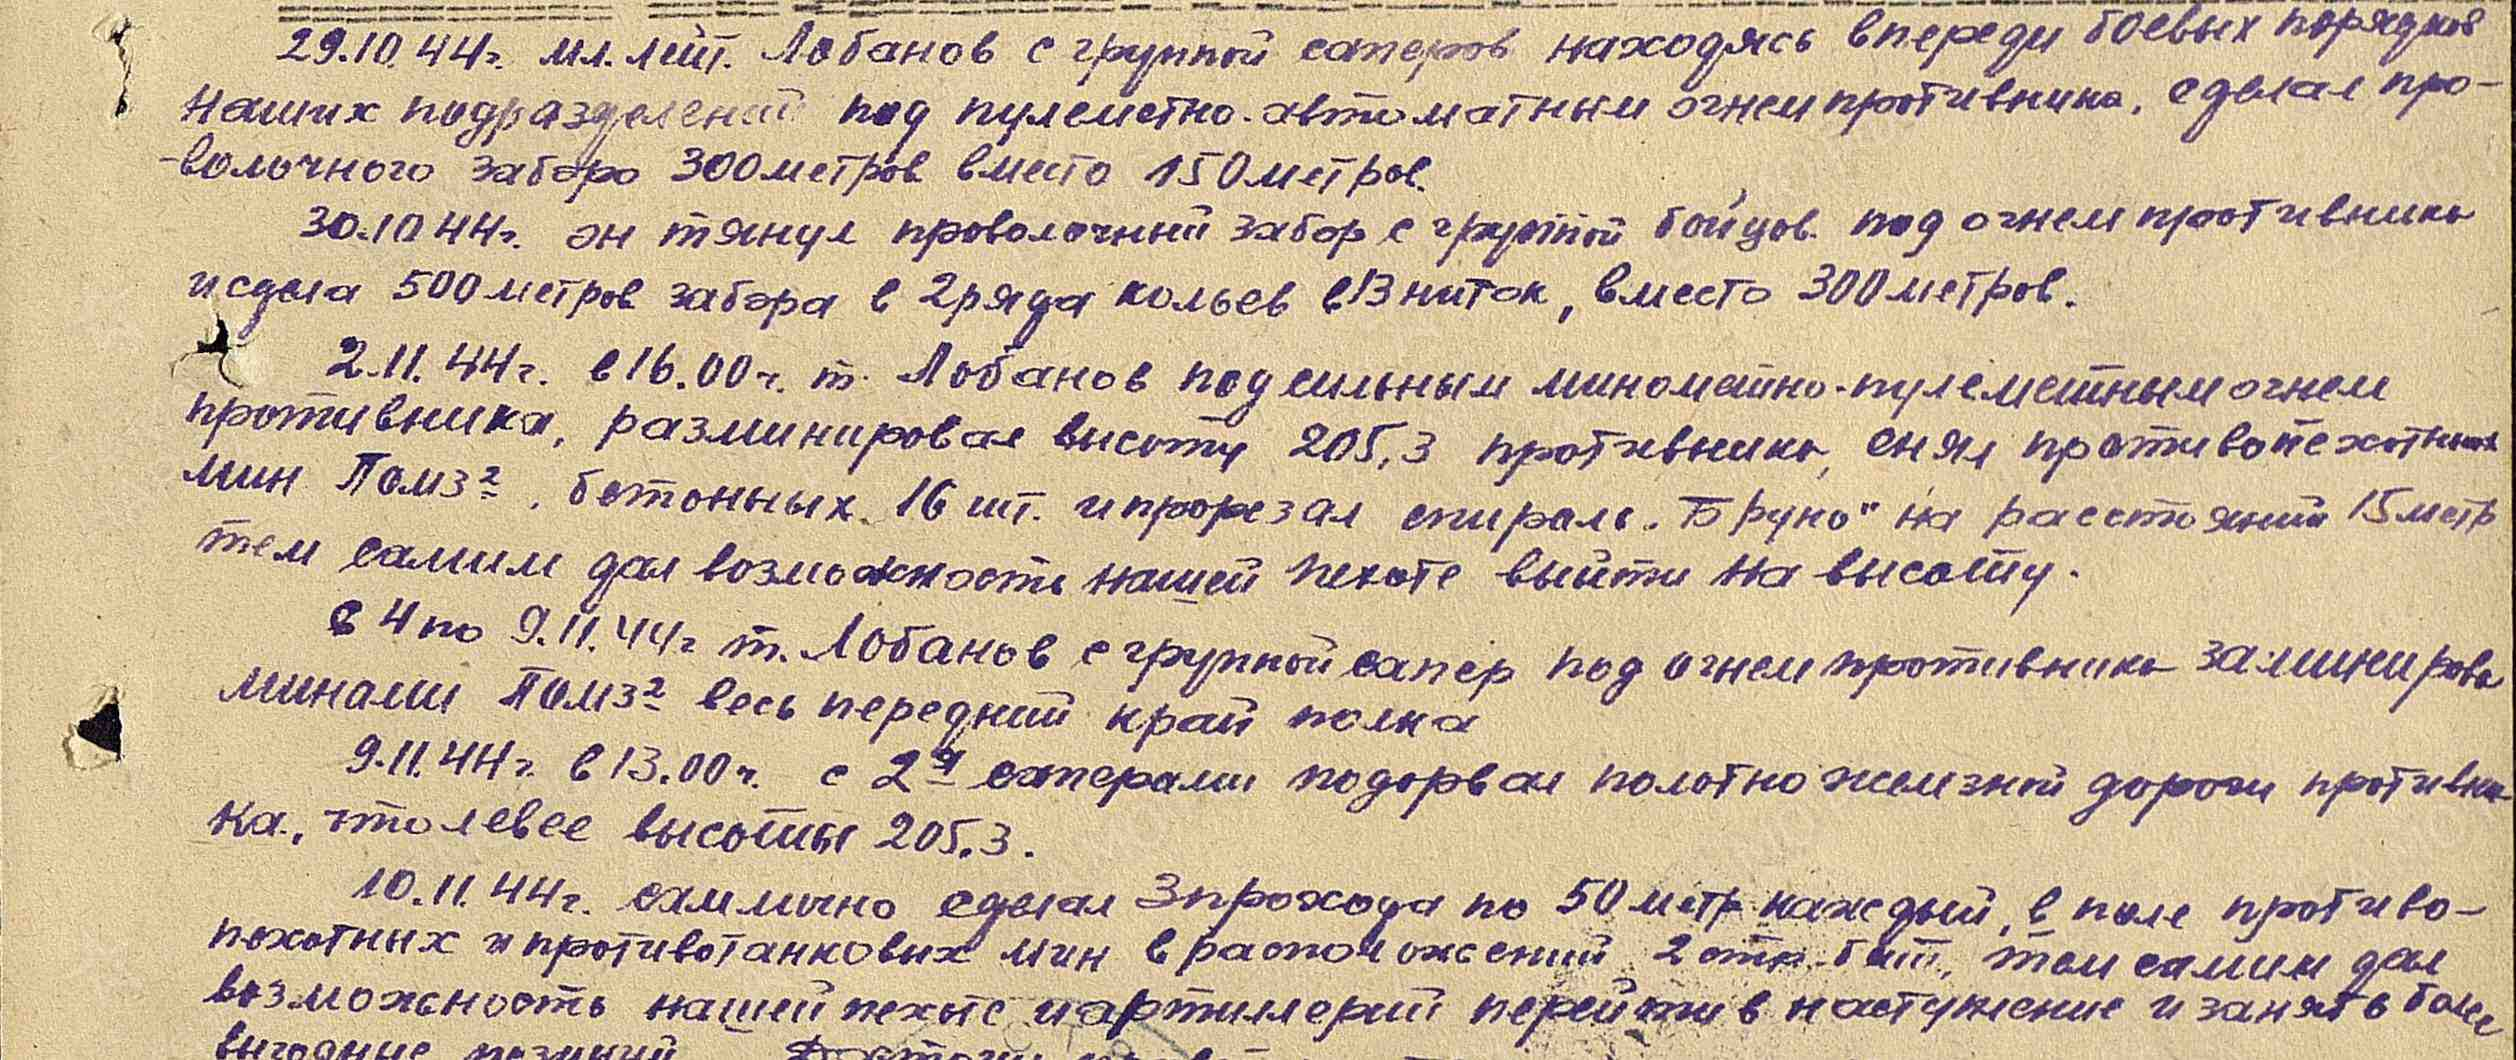 29.10.44г. мл. лейт. Лобанов с группой саперов находясь впереди боевых порядков
наших подразделений под пулеметно-автоматным огнем противника, сделал про-
-волочного забора 300 метров вместо 150 метров.
30.10.44г. он тянул проволочный забор с группой бойцов под огнем противника
и сдела 500 метров забора в 2 ряда кольев в 13 ниток, вместо 300 метров.
2.11.44г. в 16.00 ч. т. Лобанов под сильным минометно-пулеметным огнем
противника, разминировал высоту 205,3 противника, снял противопехотных
мин Помз2, бетонных 16 шт. и прорезал спираль „Бруно" на расстояний 15 метр
тем самим дал возможность нашей пехоте выйти на высоту.
в 4 по 9.11.44г т. Лобанов с группой сапер под огнем противника заминирова
минами Помз2 весь передний край полка
9.11.44г. в 13.00 ч. с 2я саперами подорвал полотно железной дороги противни-
ка, что левее высоты 205,3.
10.11.44г. сам лично сделал 3 прохода по 50 метр каждый, в поле противо-
пехотных и противотанковых мин в расположений 2 стр. бат, тем самим дал
возможность нашей пехоте и артиллерий перейти в наступление и занять более
выгодные позиций.